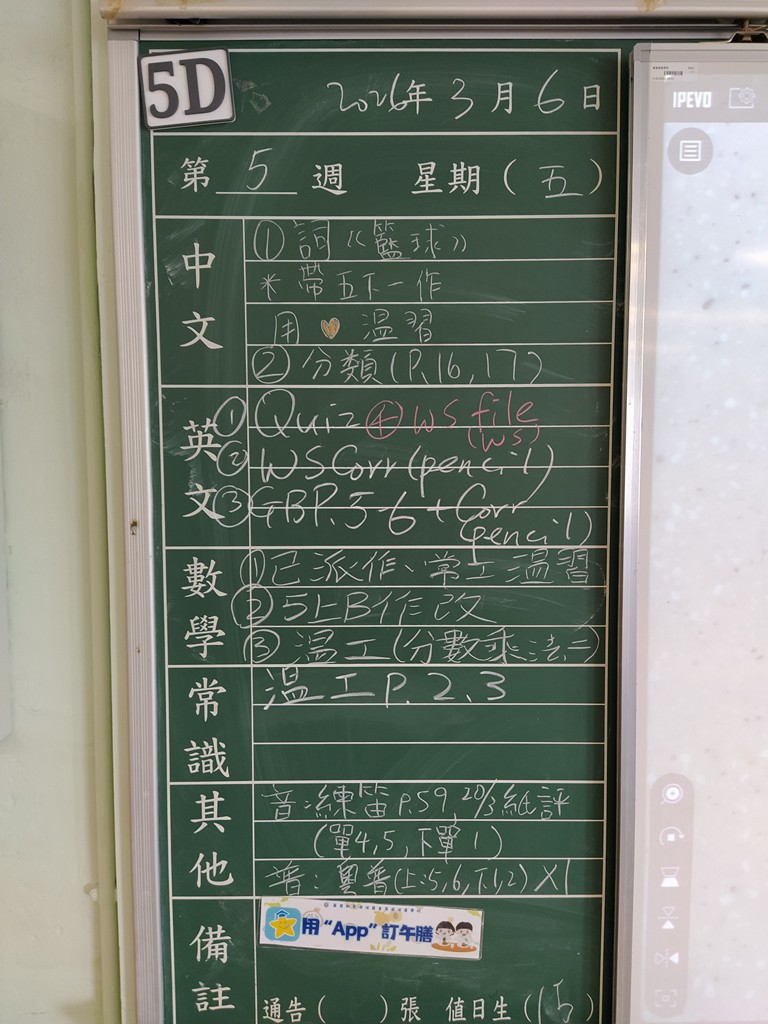 5D
2026年 3 月 6 日
第 5 週 星期 ( 五 )
中文
① 詞《籃球》
* 帶五下一作
用 ♥ 溫習
② 分類 (P.16, 17)
英文
① Quiz ⊕ WS file (WS)
② WS Corr (pencil)
③ GB P.5-6 + Corr (pencil)
數學
① 已派作、常工溫習
② 5上B作改
③ 溫工 (分數乘法二)
常識
溫工 P. 2, 3
其他
音:練笛 P.59, 20/3 紙評
(單4, 5, 下單1)
普: 粵普 (上:5, 6, 下1, 2) X1
備註
用 “App” 訂午膳
通告 ( ) 張 值日生 (15)
IPEVO